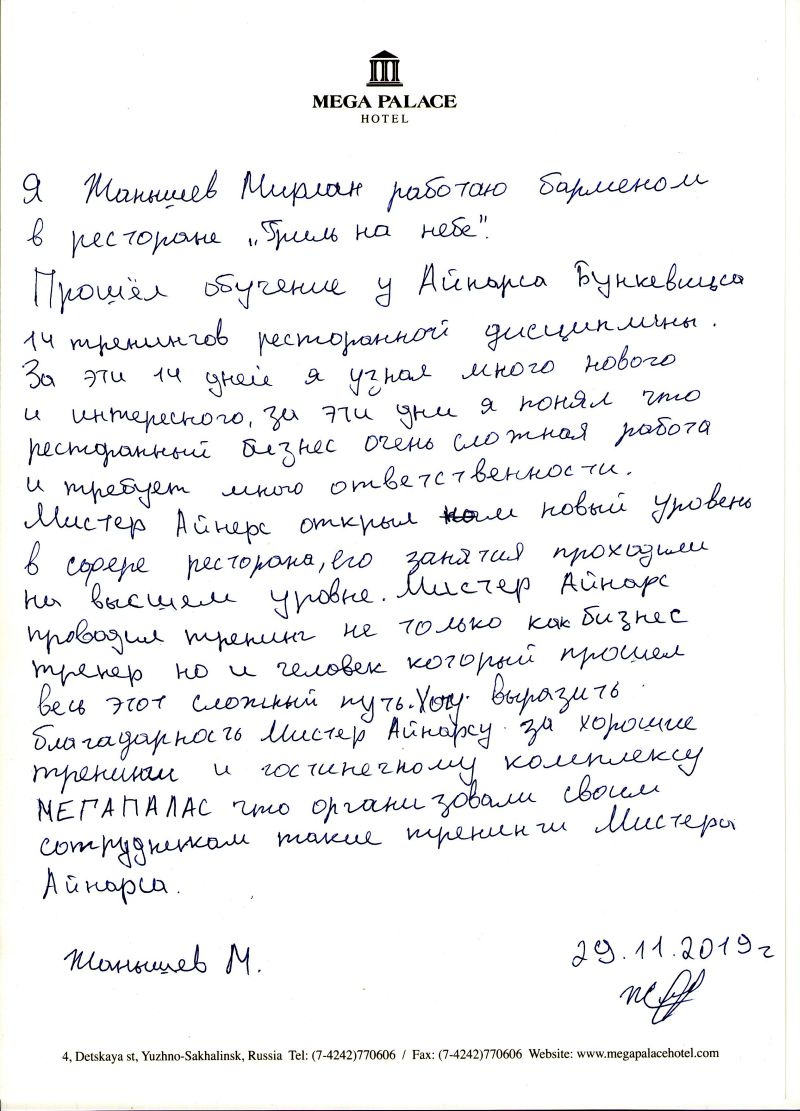 MEGA PALACE
HOTEL
Я Жанышев Мирлан работаю барменом
в ресторане „Гриль на небе".
Прошёл обучение у Айнарса Бункевицса
14 тренингов ресторанной дисциплины.
За эти 14 дней я узнал много нового
и интересного, за эти дни я понял что
ресторанный бизнес очень сложная работа
и требует много ответственности.
Мистер Айнерс открыл нам новый уровень
в сфере ресторана, его занятия проходили
на высшем уровне. Мистер Айнарс
проводил тренинг не только как бизнес
тренер но и человек который прошел
весь этот сложный путь. Хочу выразить
благадарность Мистер Айнарсу за хорошие
тренинги и гостинечному комплексу
МЕГАПАЛАС что организовали своим
сотрудникам такие тренинги Мистера
Айнарса.
Жанышев М.
29.11.2019г
4, Detskaya st, Yuzhno-Sakhalinsk, Russia Tel: (7-4242)770606 / Fax: (7-4242)770606 Website: www.megapalacehotel.com